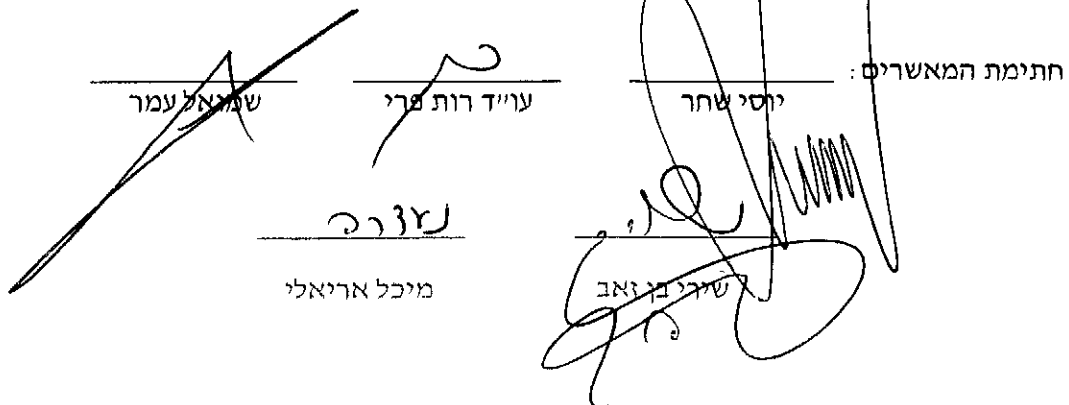 חתימת המאשרים:
יוסי שחר עו״ד רות פרי שמואל עמר
נעדרה
שירי בן זאב מיכל אריאלי